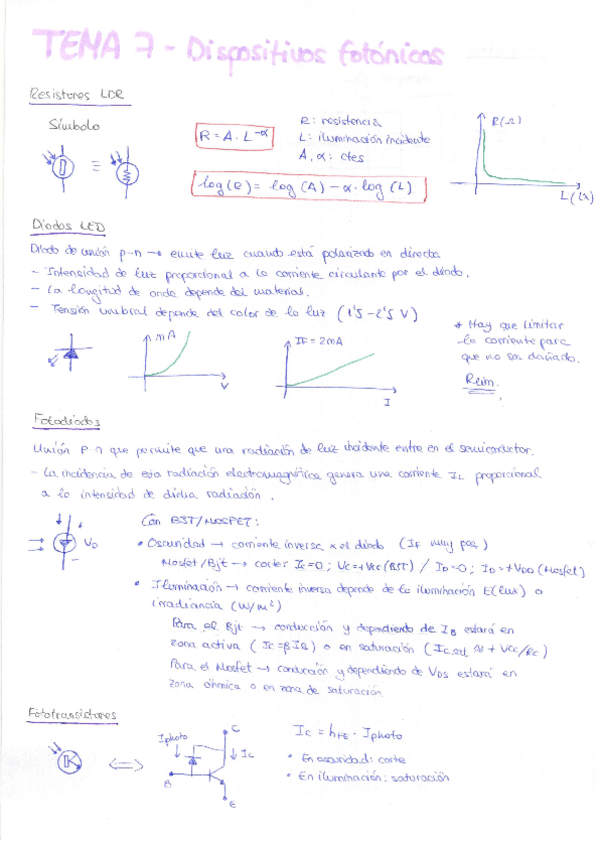 TEMA 7 - Dispositivos fotónicos
Resistores LDR
Símbolo
R = A · L^-α
R: resistencia
L: iluminación incidente
A, α: ctes
log(R) = log(A) - α · log(L)
R(Ω)
L(lx)
Diodos LED
Diodo de unión p-n → emite luz cuando está polarizado en directa
- Intensidad de luz proporcional a la corriente circulante por el diodo.
- La longitud de onda depende del material.
- Tensión umbral depende del color de la luz (1'5-2'5 V)
* Hay que limitar
la corriente para
que no sea dañado.
Rlim.
mA
V
IF = 2mA
I
Fotodiodos
Unión P-n que permite que una radiación de luz incidente entre en el semiconductor.
- La incidencia de esta radiación electromagnética genera una corriente IL proporcional
a la intensidad de dicha radiación.
+
VD
-
Con BJT/MOSFET:
• Oscuridad → corriente inversa x el diodo (IF muy peq)
Mosfet/Bjt → corte: IC=0; VC=+VCC (BJT) / ID=0; ID=+VDD (Mosfet)
• Iluminación → corriente inversa depende de la iluminación E(lux) o
irradiancia (W/m²)
Para el Bjt → conducción y dependiendo de IB estará en
zona activa (IC=βIB) o en saturación (IC,sat ≈ + VCC/RC)
Para el Mosfet → conducción y dependiendo de VDS estará en
zona óhmica o en zona de saturación.
Fototransistores
Iphoto
C
IL
B
E
IC = hFE · Iphoto
• En oscuridad: corte
• En iluminación: saturación